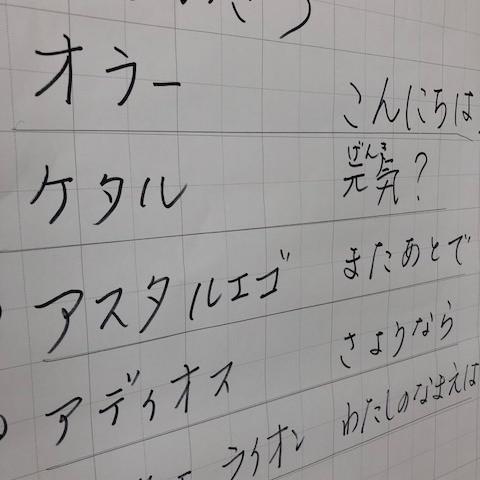 オラー こんにちは
ケタル 元気?
げんき
アスタルエゴ またあとで
アディオス さようなら
ライオン わたしのなまえは